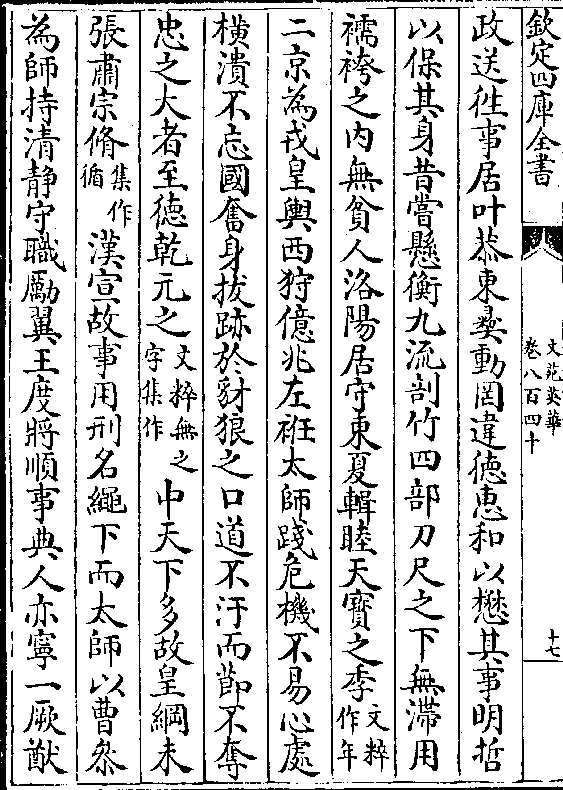 欽定四庫全書
文苑英華
卷八百四十
十七
政送徃事居叶恭東彝動罔違德惠和以懋其事明哲
以保其身昔嘗懸衡九流剖竹四部刀尺之下無滯用
襦袴之内無貧人洛陽居守東夏輯睦天寶之季文粹作年
二京為戎皇輿西狩億兆左袵太師踐危機不易心處
横潰不忘國奮身拔跡於豺狼之口道不汙而節不奪
忠之大者至德乾元之文粹無之字集作中天下多故皇綱未
張肅宗脩集作循漢宣故事用刑名繩下而太師以曹叅
為師持清静守職勵翼王度將順事典人亦寧一厥猷